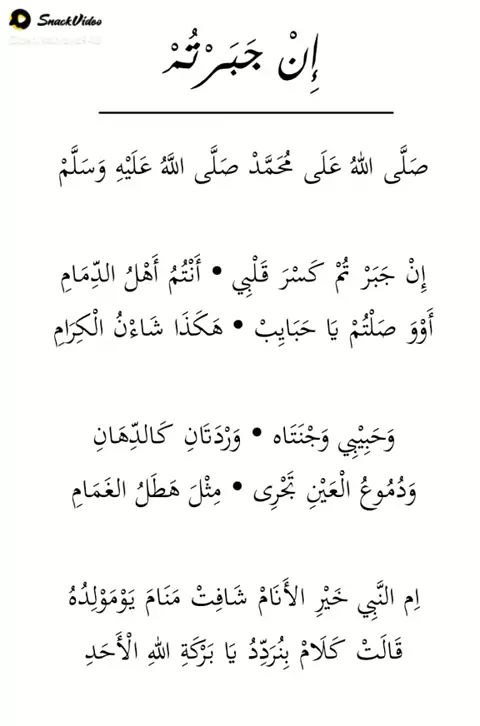 SnackVideo
إِنْ جَبَرْتُمْ
صَلَّى اللهُ عَلَى مُحَمَّدْ صَلَّى اللَّهُ عَلَيْهِ وَسَلَّمْ
إِنْ جَبَرْ تُمْ كَسْرَ قَلْبِي • أَنْتُمُ أَهْلُ الدِّمَامِ
أَوْوَ صَلْتُمْ يَا حَبَايِبْ • هَكَذَا شَاءْنُ الْكِرَامِ
وَحَبِيْبِي وَجْنَتَاه • وَرْدَتَانِ كَالدِّهَانِ
وَدُمُوعُ الْعَيْنِ تَجْرِى • مِثْلَ هَطَلُ الغَمَامِ
اِم النَّبِي خَيْرِ الأَنَامْ شَافِتْ مَنَامَ يَوْمَوْلِدُهُ
قَالَتْ كَلَامْ بِنُرَدِّدُ يَا بَرْكَةِ اللهِ الْأَحَدِ